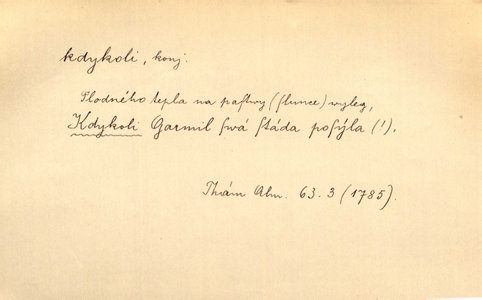 kdykoli, konj.
Plodného tepla na paſtwy (ſlunce) wyleg,
Kdykoli Garmil ſwá ſtáda poſýla (!),
Thám Alm. 63.3 (1785).